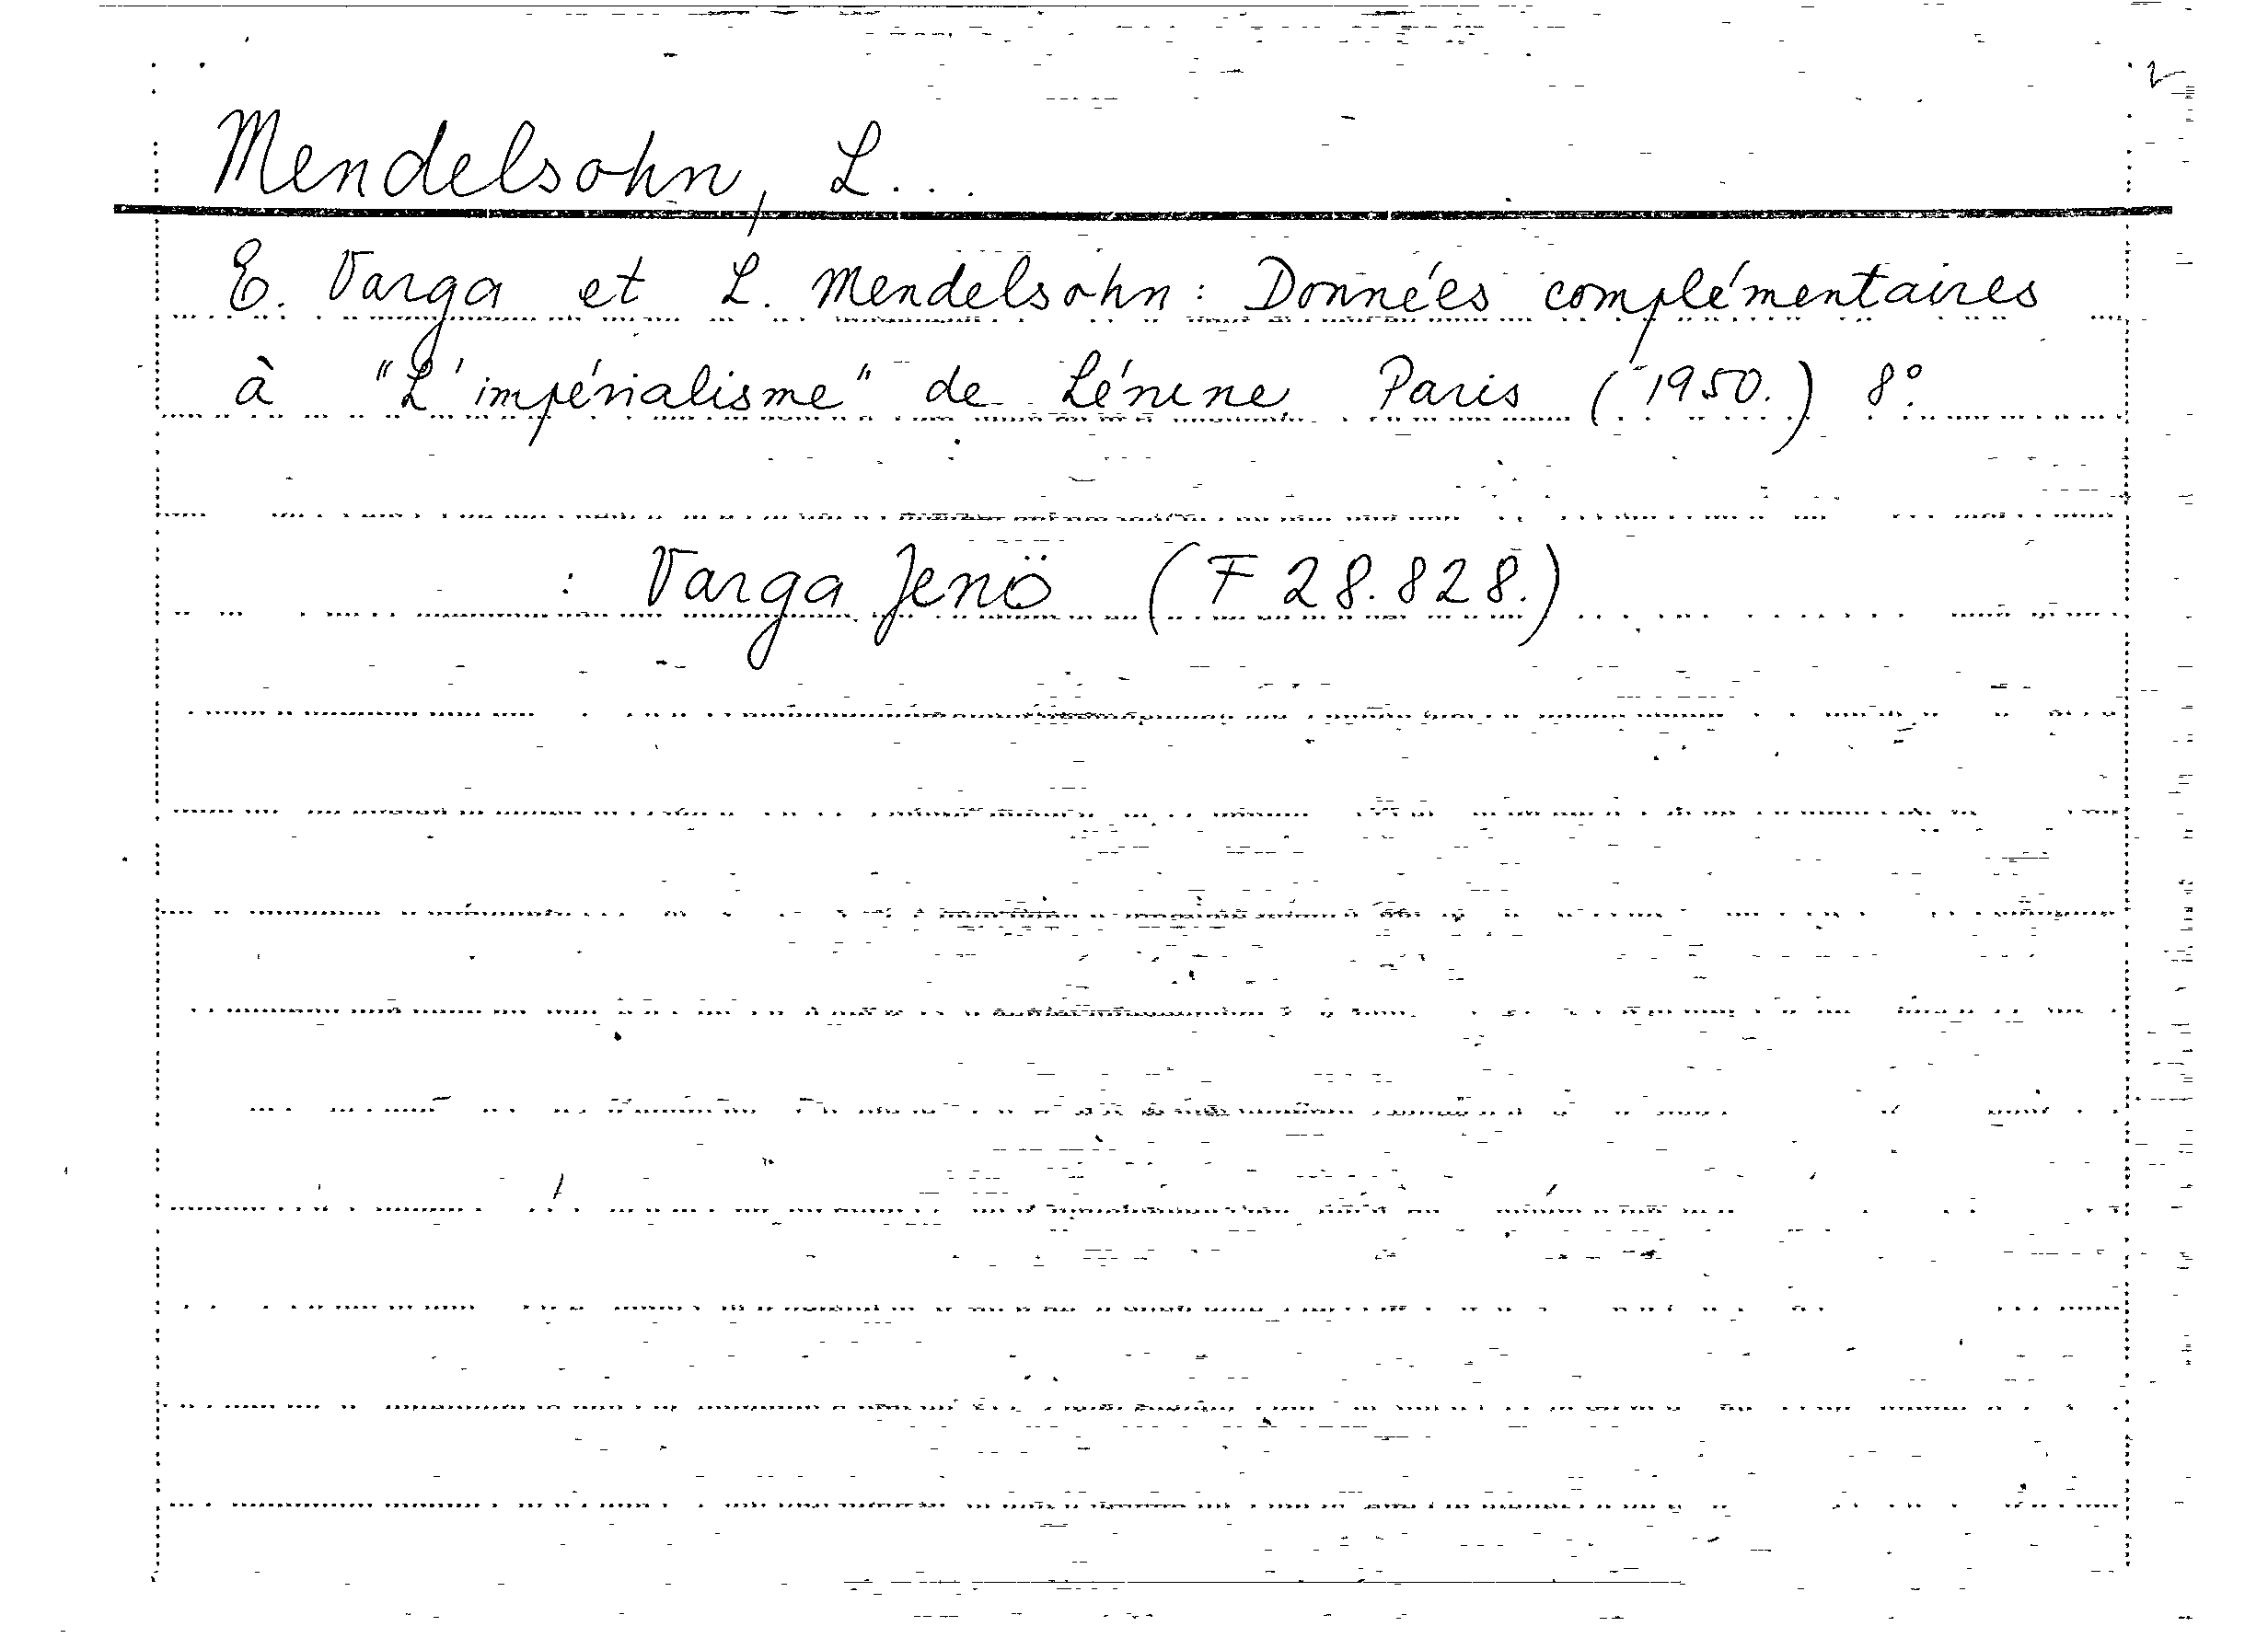 Mendelsohn, L...
E. Varga et L. Mendelsohn: Données complémentaires
à "L'impérialisme" de Lénine. Paris (1950.) 8°.
: Varga Jenö (F 28.828.)